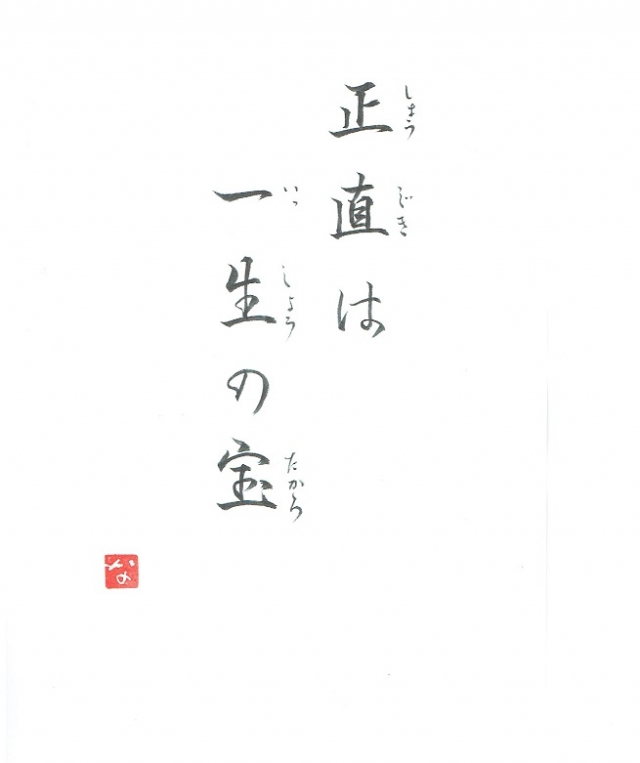 正直は
しょうじき
一生の宝
いっしょう たから